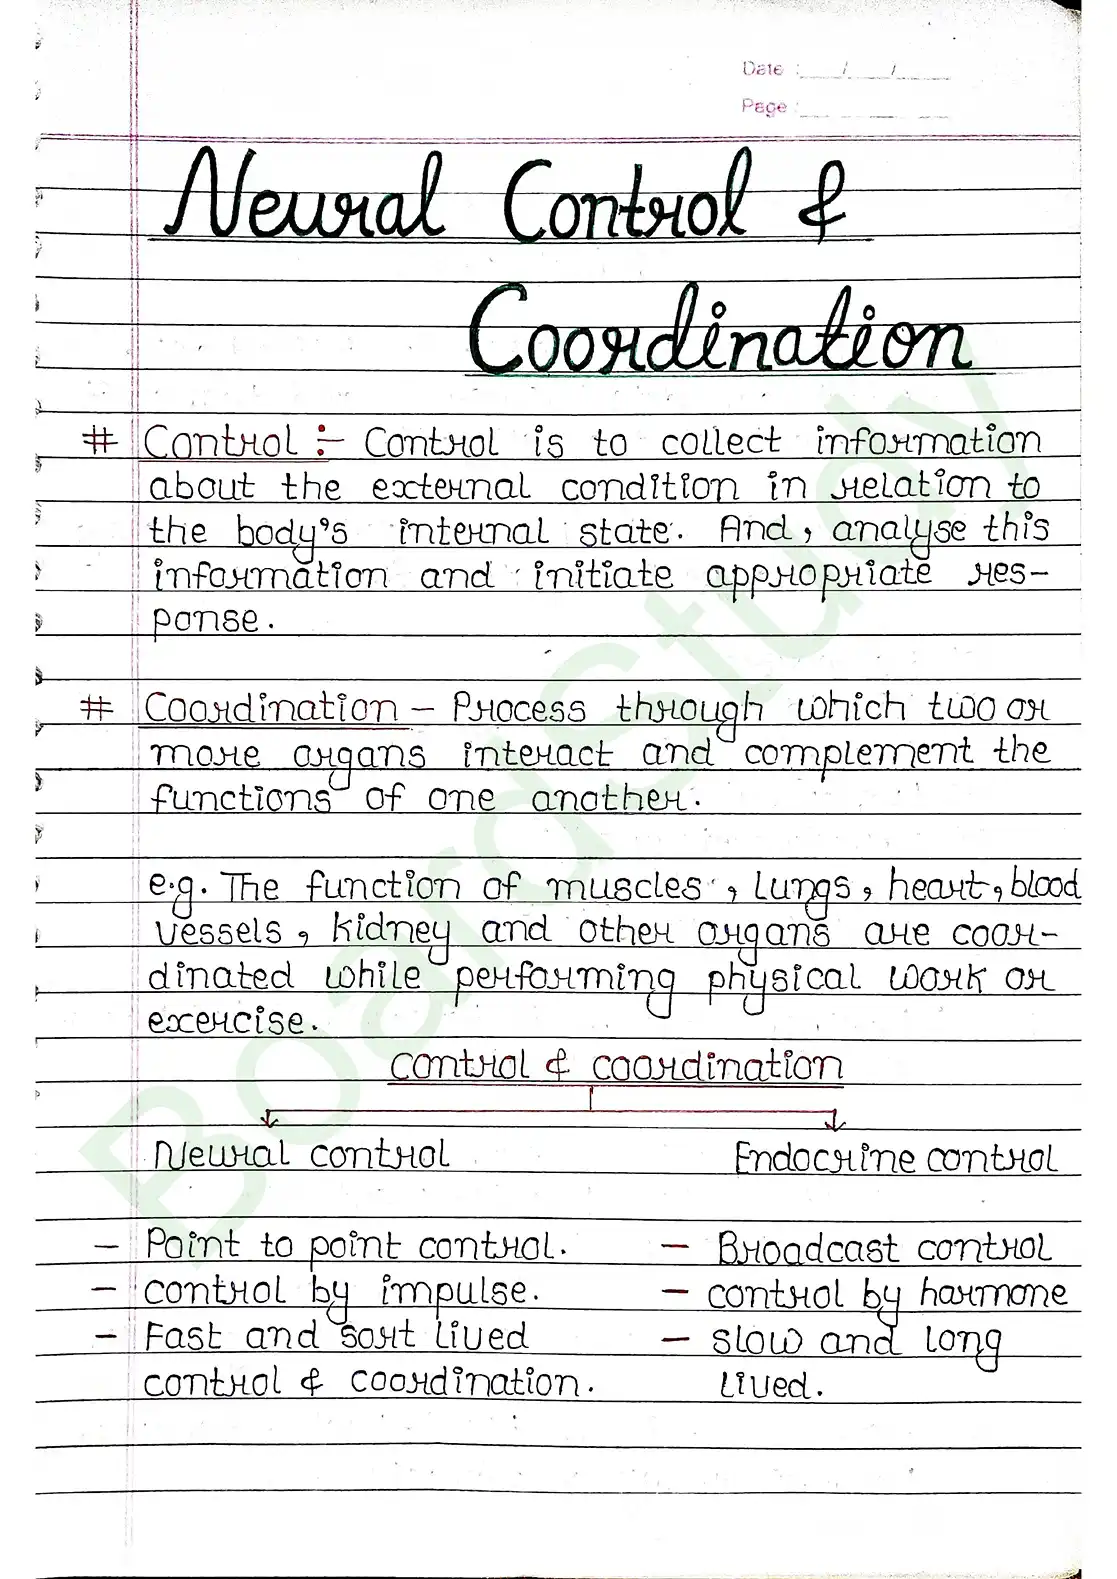 Date : / /
Page :
Neural Control &
Coordination
# Control :- Control is to collect information
about the external condition in relation to
the body's internal state. And, analyse this
information and initiate appropriate res-
ponse.
# Coordination - Process through which two or
more organs interact and complement the
functions of one another.
e.g. The function of muscles, lungs, heart, blood
vessels, kidney and other organs are coor-
dinated while performing physical work or
exercise.
control & coordination
Neural control Endocrine control
- Point to point control. - Broadcast control
- control by impulse. - control by harmone
- Fast and sort lived - slow and long
control & coordination. lived.
BoardStudy